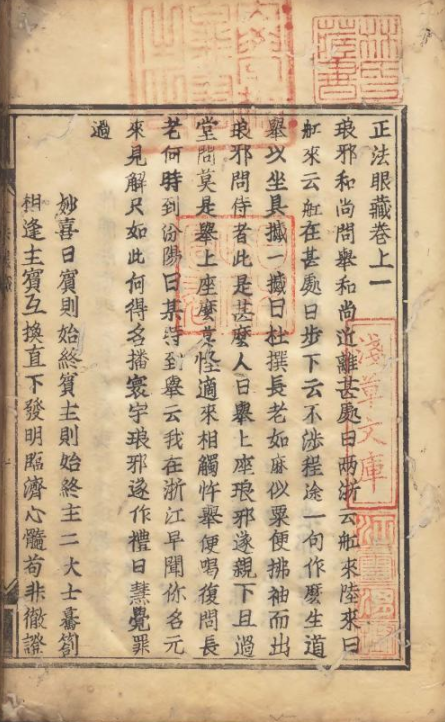 林氏藏書
正法眼藏卷上一
琅邪和尚問舉和尚近離甚處曰兩浙云舡來陸來曰
舡來云舡在甚處曰步下云不涉程途一句作麼生道
舉以坐具摵一摵曰杜撰長老如麻似粟便拂袖而出
琅邪問侍者此是甚麼人曰舉上座琅邪遂親下且過
堂問莫是舉上座麼莫怪適來相觸忤舉便喝復問長
老何時到汾陽曰某時到舉云我在浙江早聞你名元
來見解只如此何得名播寰宇琅邪遂作禮曰慧覺罪
過
妙喜曰賓則始終賓主則始終主二大士驀劄
相逢主賓互換直下發明臨濟心髓苟非徹證
淺草文庫